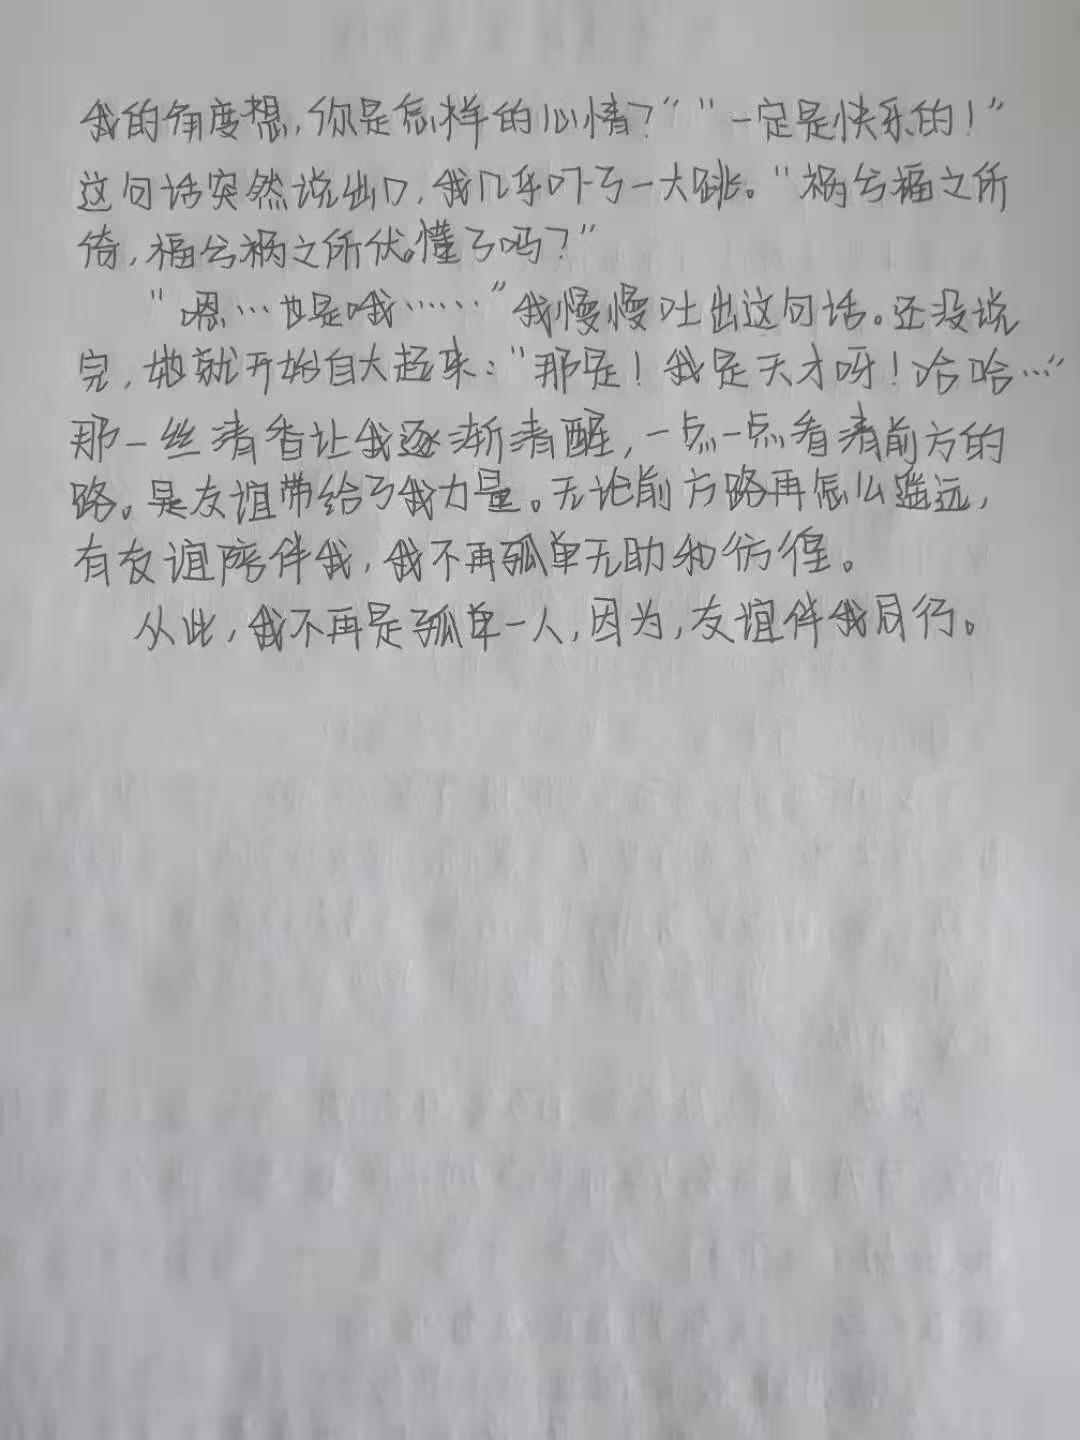 我的角度想,你是怎样的心情?”“一定是快乐的!”
这句话突然说出口,我几乎吓了一大跳。“祸兮福之所
倚,福兮祸之所伏。懂了吗?”
“嗯…也是哦……”我慢慢吐出这句话。还没说
完,她就开始自大起来:“那是!我是天才呀!哈哈…”
那一丝清香让我逐渐清醒,一点一点看清前方的
路。是友谊带给了我力量。无论前方路再怎么遥远,
有友谊陪伴我,我不再孤单无助和彷徨。
从此,我不再是孤单一人,因为,友谊伴我同行。